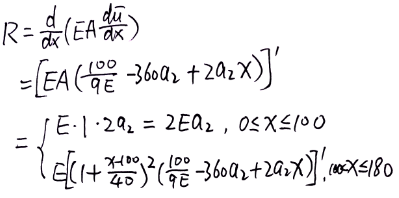 R = d/dx (EA dũ/dx)
= [EA(100/9E - 360a₂ + 2a₂x)]'
= { E·1·2a₂ = 2Ea₂ , 0≤x≤100
E[(1 + x-100/40)²(100/9E - 360a₂ + 2a₂x)]', 100<x≤180